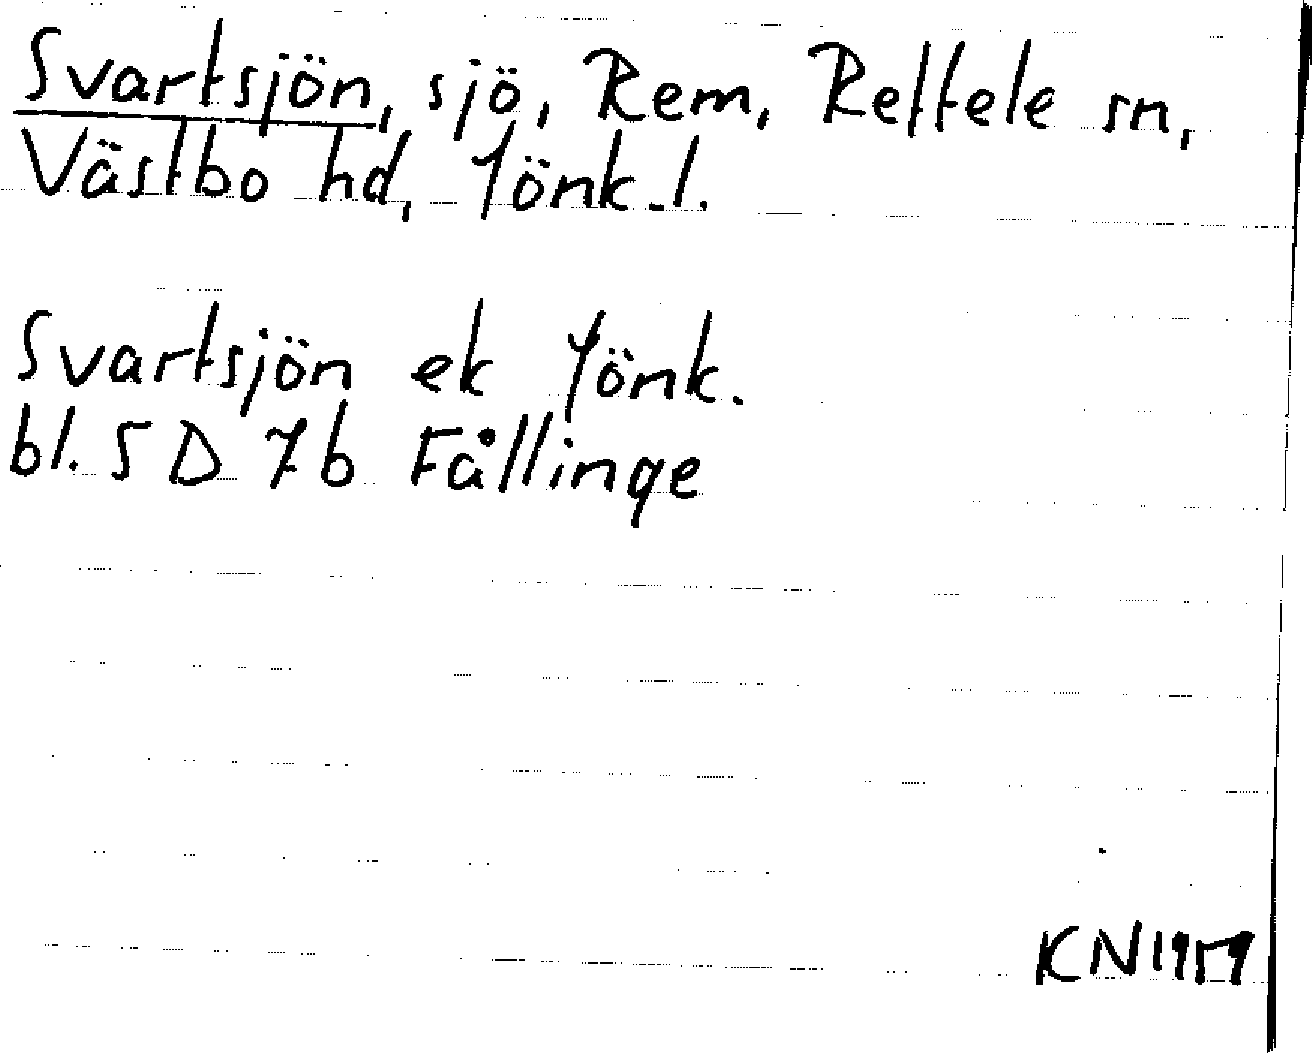 Svartsjön, sjö, Rem, Reftele sn,
Västbo hd, Jönk.l.
Svartsjön ek Jönk.
bl. 5 D 7b Fållinge